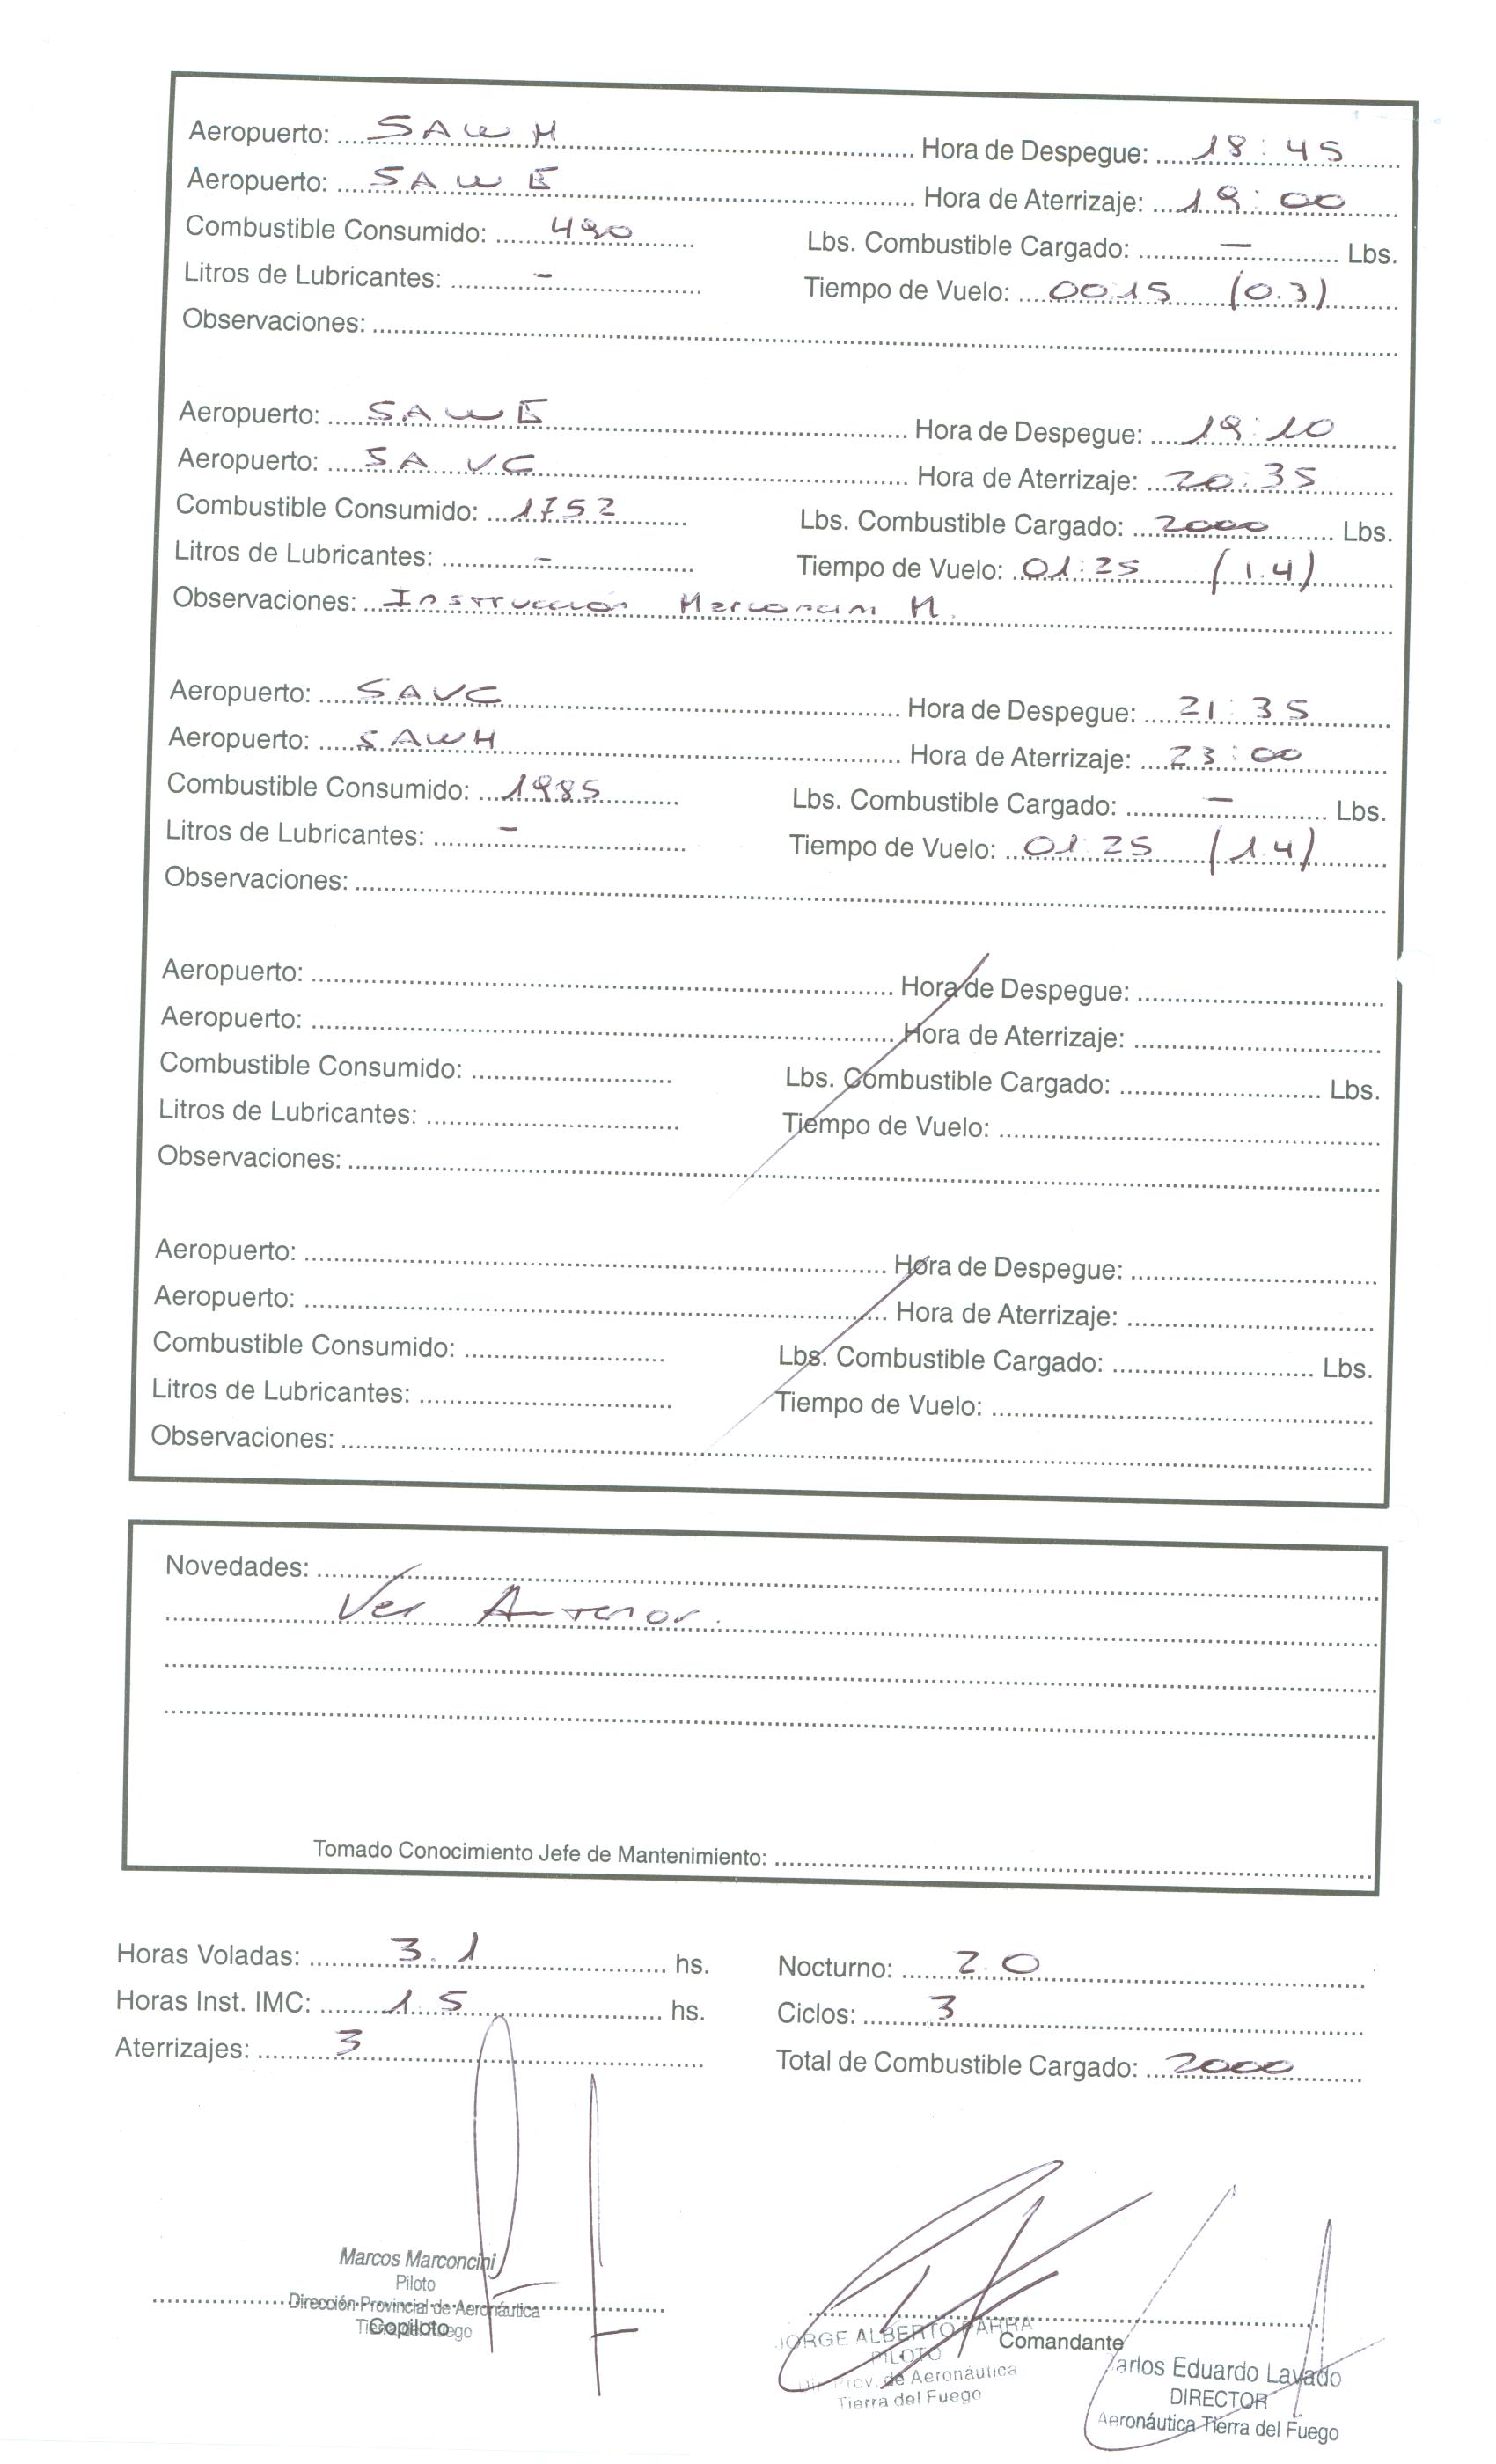 Aeropuerto: SAWH Hora de Despegue: 18:45
Aeropuerto: SAWE Hora de Aterrizaje: 19:00
Combustible Consumido: 490 Lbs. Combustible Cargado: — Lbs.
Litros de Lubricantes: - Tiempo de Vuelo: 00:15 (0.3)
Observaciones:
Aeropuerto: SAWE Hora de Despegue: 19:10
Aeropuerto: SAVC Hora de Aterrizaje: 20:35
Combustible Consumido: 1752 Lbs. Combustible Cargado: 2000 Lbs.
Litros de Lubricantes: - Tiempo de Vuelo: 01:25 (1.4)
Observaciones: Instrucción Marconcini M.
Aeropuerto: SAVC Hora de Despegue: 21:35
Aeropuerto: SAWH Hora de Aterrizaje: 23:00
Combustible Consumido: 1985 Lbs. Combustible Cargado: — Lbs.
Litros de Lubricantes: - Tiempo de Vuelo: 01:25 (1.4)
Observaciones:
Aeropuerto: Hora de Despegue:
Aeropuerto: Hora de Aterrizaje:
Combustible Consumido: Lbs. Combustible Cargado: Lbs.
Litros de Lubricantes: Tiempo de Vuelo:
Observaciones:
Aeropuerto: Hora de Despegue:
Aeropuerto: Hora de Aterrizaje:
Combustible Consumido: Lbs. Combustible Cargado: Lbs.
Litros de Lubricantes: Tiempo de Vuelo:
Observaciones:
Novedades:
Ver Anterior.
Tomado Conocimiento Jefe de Mantenimiento:
Horas Voladas: 3.1 hs. Nocturno: 2.0
Horas Inst. IMC: 1.5 hs. Ciclos: 3
Aterrizajes: 3 Total de Combustible Cargado: 2000
Marcos Marconcini
Piloto
Dirección Provincial de Aeronáutica
Tierra del Fuego
Copiloto
JORGE ALBERTO PARRA
PILOTO
Dir. Prov. de Aeronáutica
Tierra del Fuego
Comandante
Carlos Eduardo Lavado
DIRECTOR
Aeronáutica Tierra del Fuego